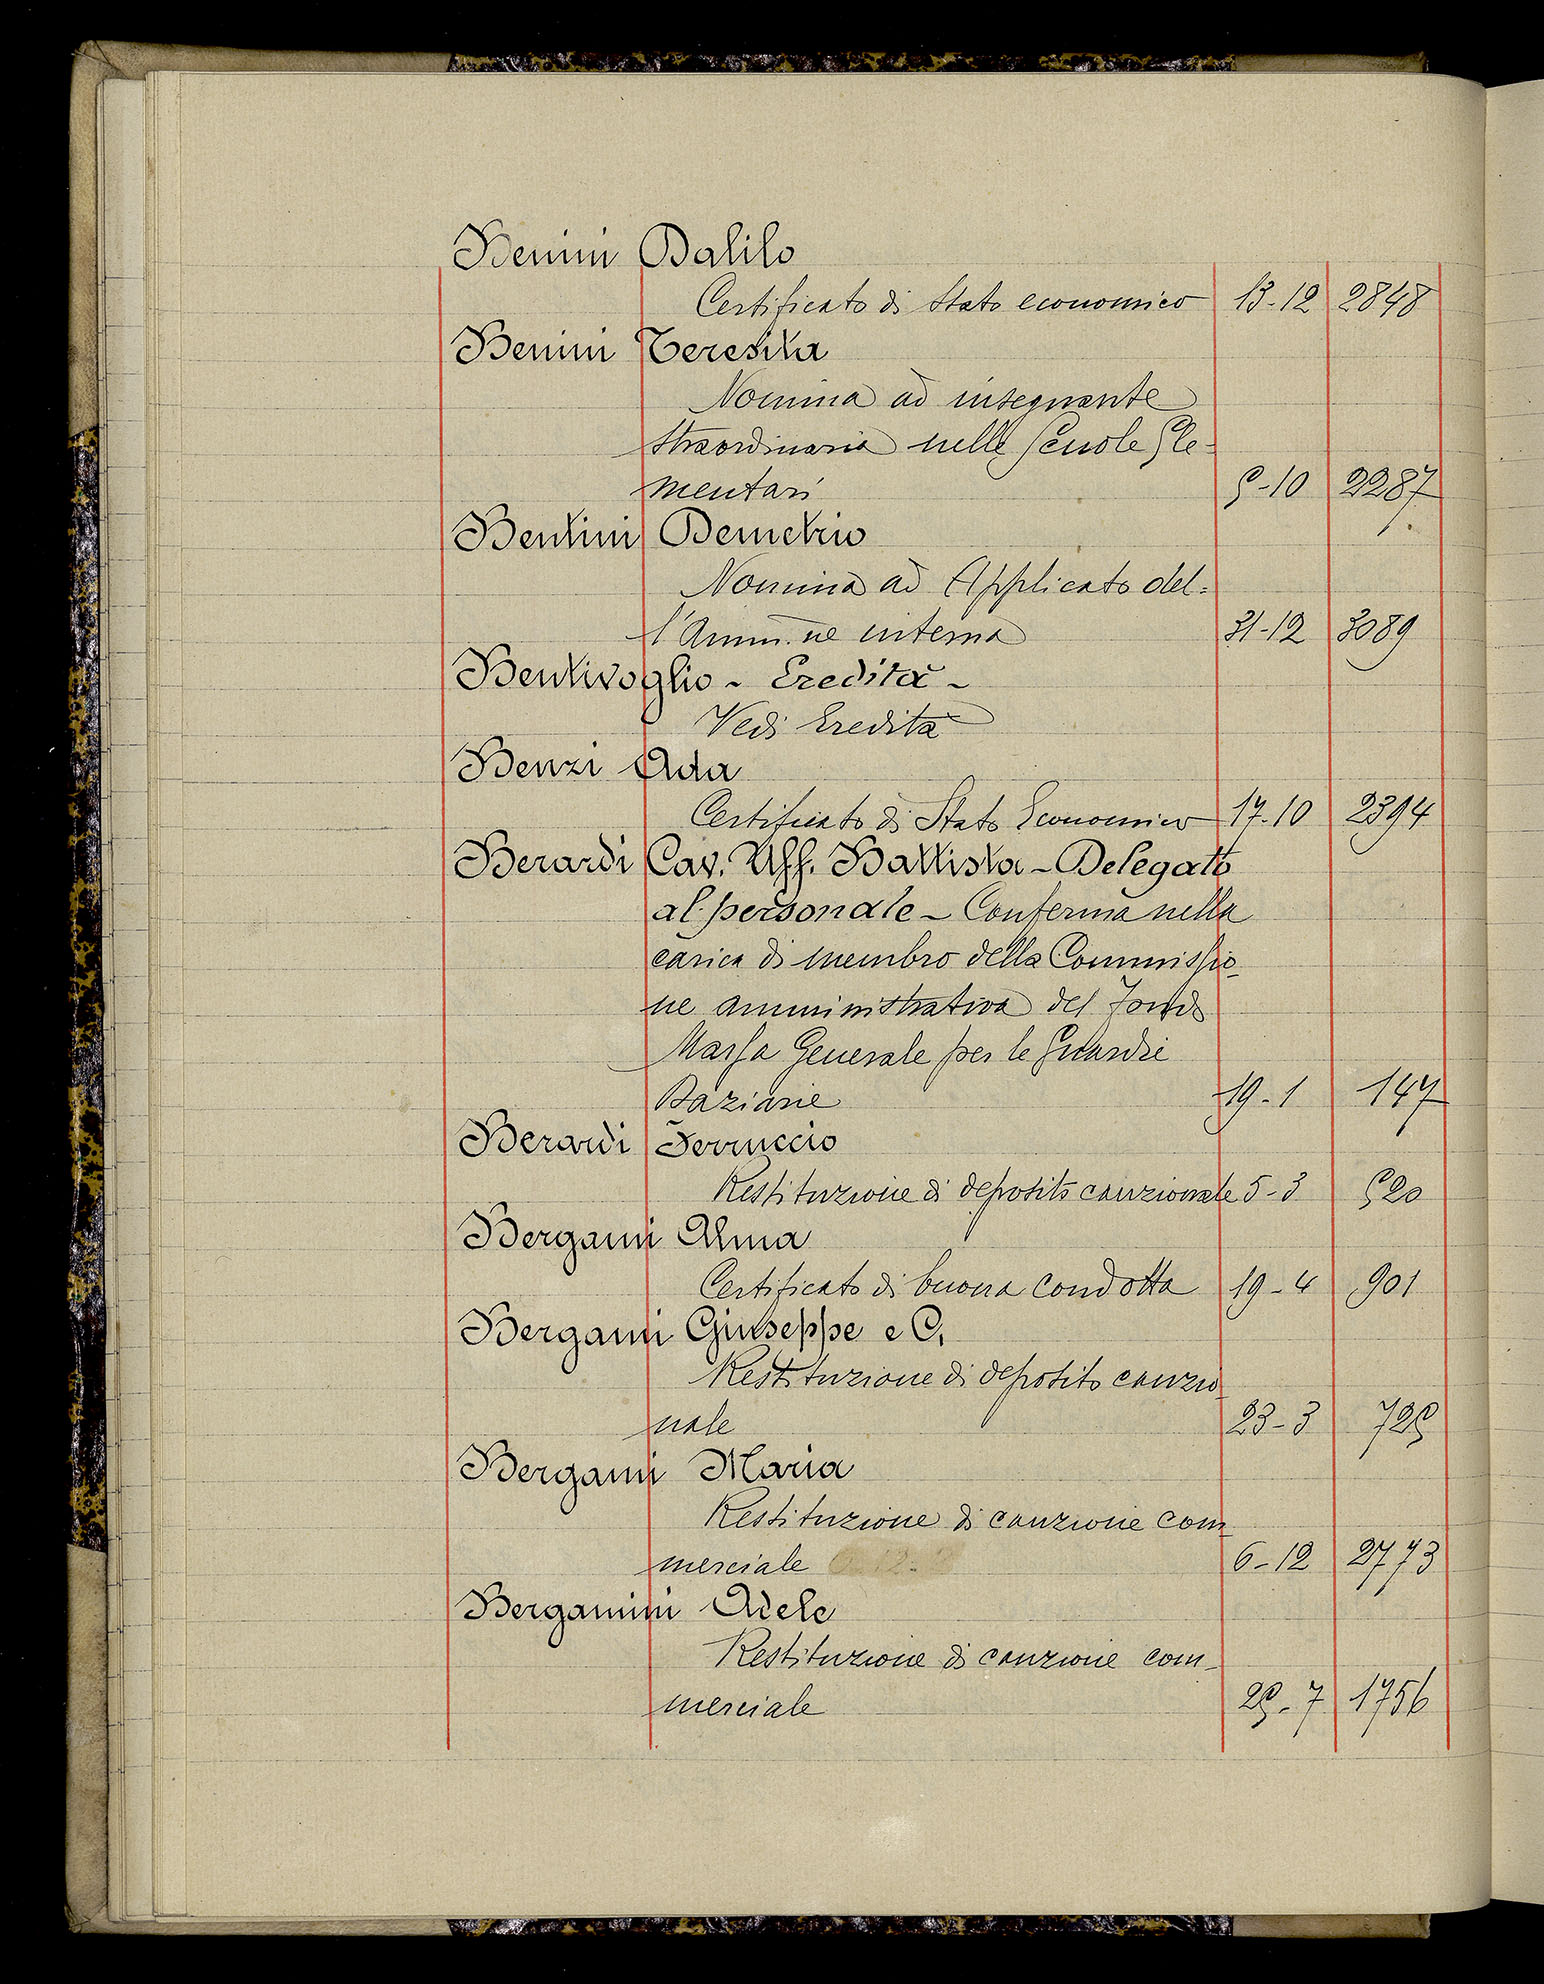 Benini Dalilo
Certificato di Stato economico 13-12 2848
Benini Teresita
Nomina ad insegnante
straordinaria nelle Scuole Ele-
mentari 8-10 2287
Bentini Demetrio
Nomina ad Applicato del=
l'Amm.ne interna 31-12 3089
Bentivoglio - Eredità -
Vedi Eredità
Benzi Ada
Certificato di Stato Economico 17-10 2394
Berardi Cav. Uff. Battista - Delegato
al personale - Conferma nella
carica di membro della Commissio-
ne amministrativa del Fondo
Massa Generale per le Guardie
Daziarie 19-1 147
Berardi Ferruccio
Restituzione di deposito cauzionale 5-3 520
Bergami Alma
Certificato di buona condotta 19-4 901
Bergami Giuseppe e C.
Restituzione di deposito cauzio-
nale 23-3 728
Bergami Maria
Restituzione di cauzione com-
merciale 6-12 2773
Bergamini Adele
Restituzione di cauzione com-
merciale 28-7 1756